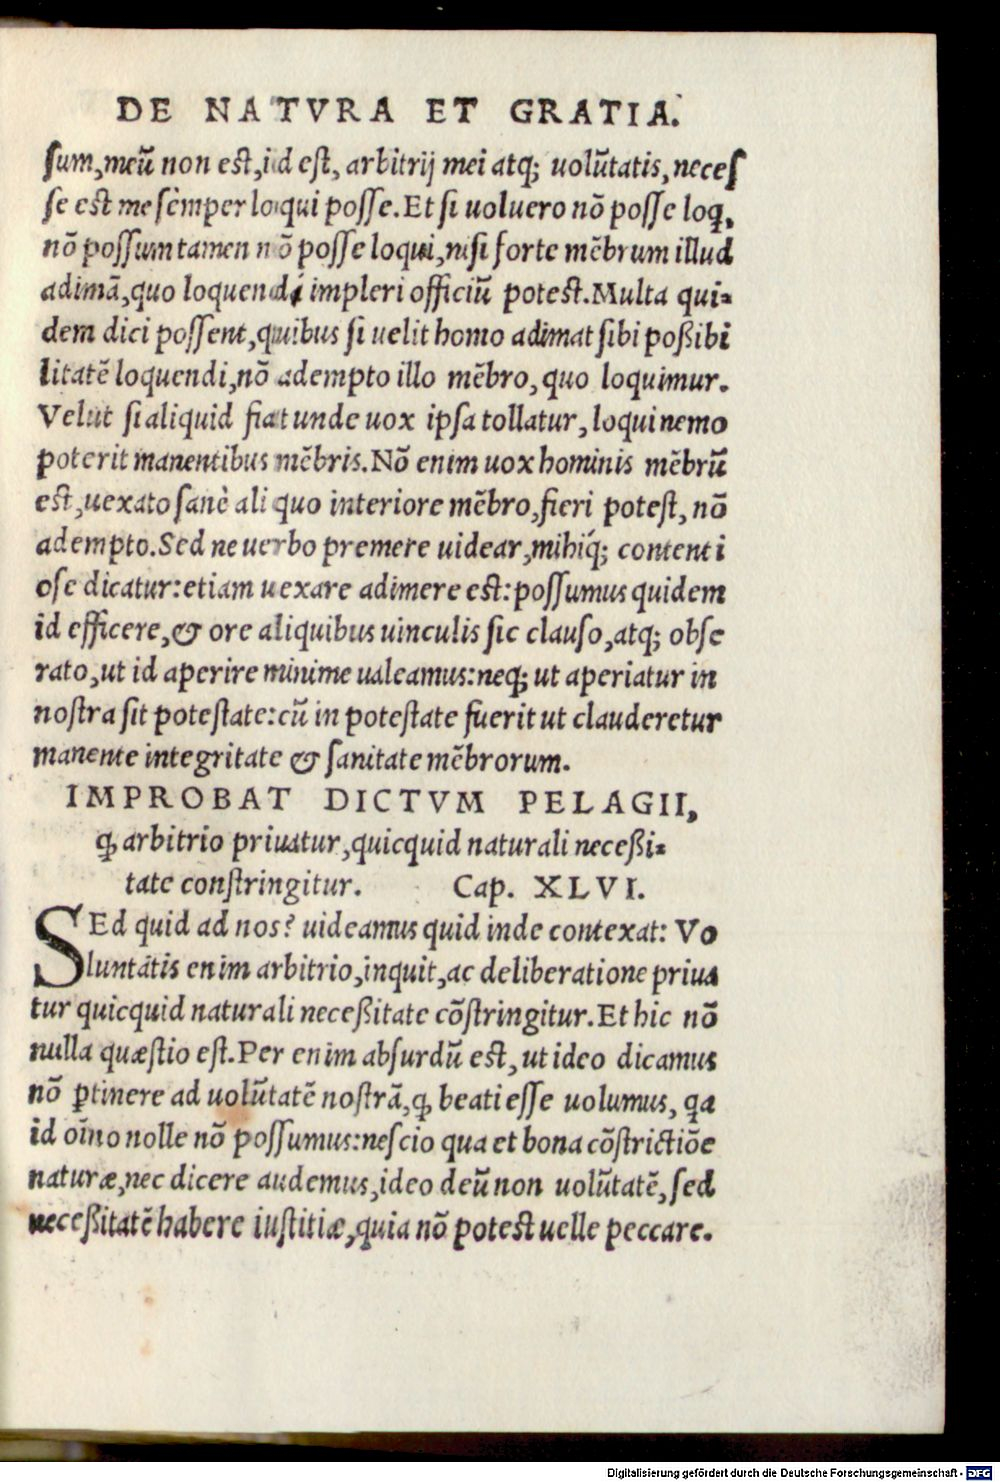 DE NATVRA ET GRATIA.
sum, meũ non est, id est, arbitrij mei atq; uolũtatis, neces
se est me semper loqui posse. Et si uoluero nõ posse loq,
nõ possum tamen nõ posse loqui, nisi forte mẽbrum illud
adimã, quo loquendi impleri officiũ potest. Multa qui-
dem dici possent, quibus si uelit homo adimat sibi poßibi
litatẽ loquendi, nõ adempto illo mẽbro, quo loquimur.
Velut si aliquid fiat unde uox ipsa tollatur, loqui nemo
poterit manentibus mẽbris. Nõ enim uox hominis mẽbrũ
est, uexato sanè aliquo interiore mẽbro, fieri potest, nõ
adempto. Sed ne uerbo premere uidear, mihiq́; contenti
ose dicatur: etiam uexare adimere est: possumus quidem
id efficere, & ore aliquibus uinculis sic clauso, atq; obse
rato, ut id aperire minime ualeamus: neq; ut aperiatur in
nostra sit potestate: cũ in potestate fuerit ut clauderetur
manente integritate & sanitate mẽbrorum.
IMPROBAT DICTVM PELAGII,
ꝙ arbitrio priuatur, quicquid naturali neceßi-
tate constringitur. Cap. XLVI.
SEd quid ad nos? uideamus quid inde contexat: Vo
luntatis enim arbitrio, inquit, ac deliberatione priua
tur quicquid naturali neceßitate cõstringitur. Et hic nõ
nulla quæstio est. Per enim absurdũ est, ut ideo dicamus
nõ ꝑtinere ad uolũtatẽ nostrã, ꝙ beati esse uolumus, qa
id oĩno nolle nõ possumus: nescio qua et bona cõstrictiõe
naturæ, nec dicere audemus, ideo deũ non uolũtatẽ, sed
neceßitatẽ habere iustitiæ, quia nõ potest uelle peccare.
Digitalisierung gefördert durch die Deutsche Forschungsgemeinschaft - DFG